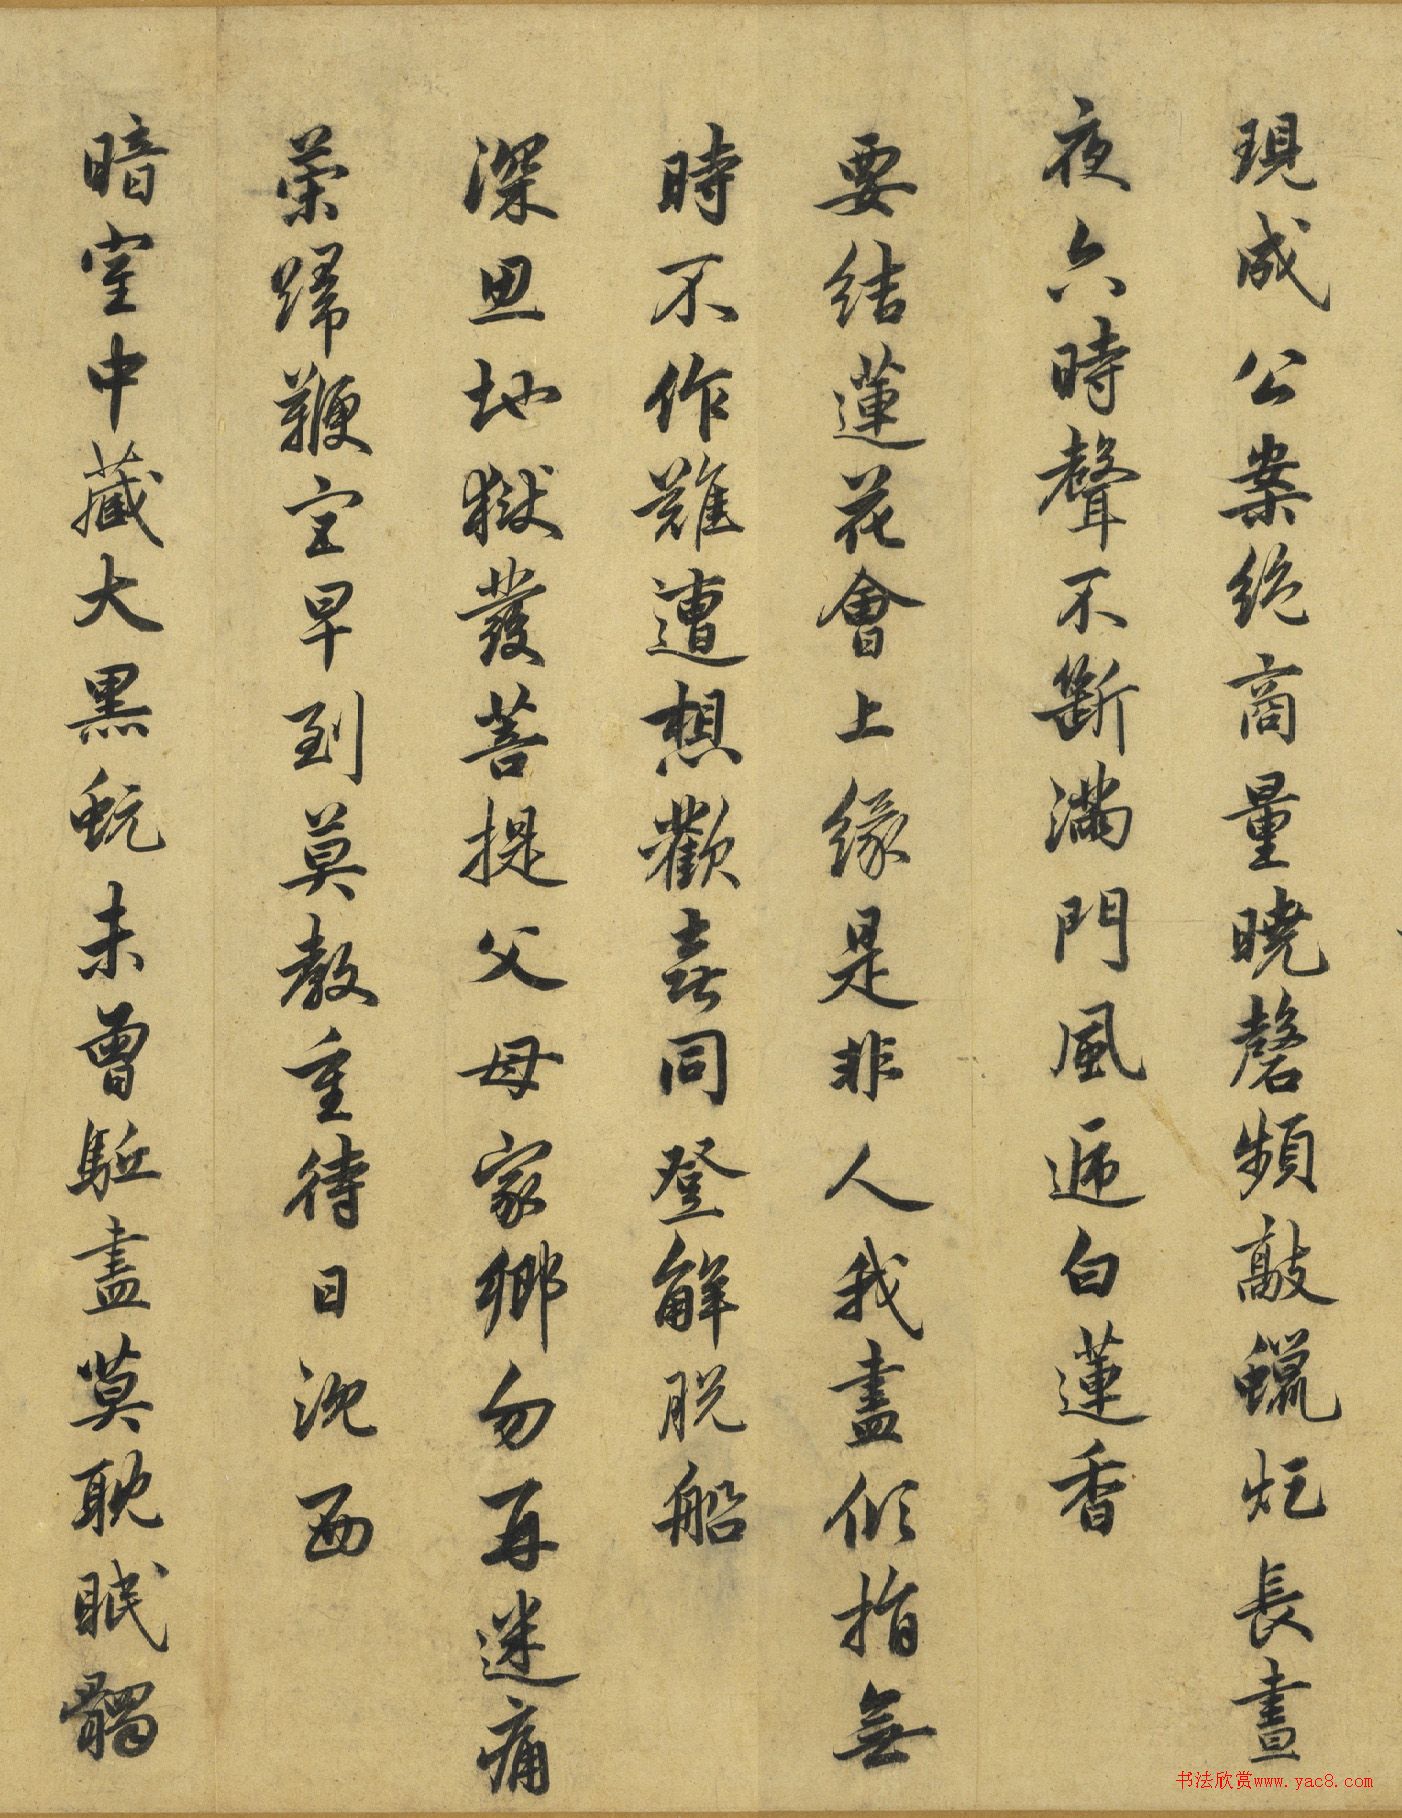 現成公案絶商量曉磬頻敲蠟炬長晝
夜六時聲不斷滿門風遞白蓮香
要結蓮花會上緣是非人我盡傾捐無
時不作難遭想歡喜同登解脱船
深思地獄發菩提父母家鄉勿再迷痛
策歸鞭宜早到莫教重待日沈西
暗室中藏大黑蚖未曾驅盡莫耽眠髑
书法欣赏www.yac8.com